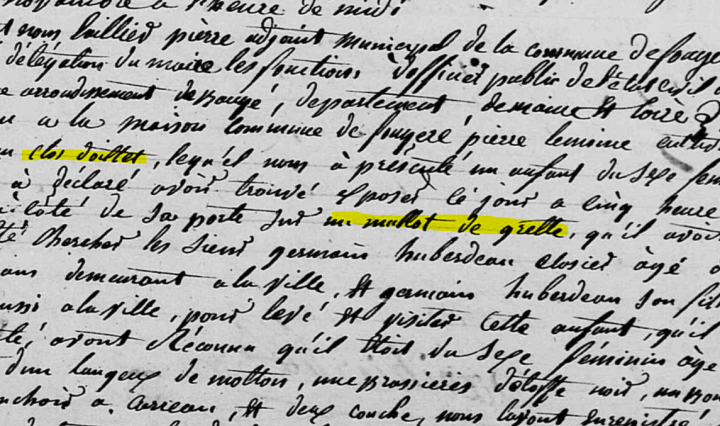 à l'heure de midi
nous Gaillier pierre adjoint municipal de la commune de fougere
délégation du maire les fonctions d'officier public de l'état civil
arrondissement de Baugé, département de maine & loire
a la maison commune de fougeré pierre lemoine
clos d'ollet, lequel nous à présenté un enfant du sexe fem
à déclaré avoir trouvé exposé ce jour a cinq heure
côté de sa porte sur un mullot de grelle, qu'il avoit
chercher les siens germain huberdeau closier âgé
ans demeurant a la ville, & germain huberdeau son fils
aussi a la ville, pour levé & visiter cette enfant, qu'il
ont Réconnu qu'il étoit du sexe féminin âgé
d'un langeux de molton, une brassieres d'étoffe noir,
a carreau, & deux couche, nous l'avons enregistré